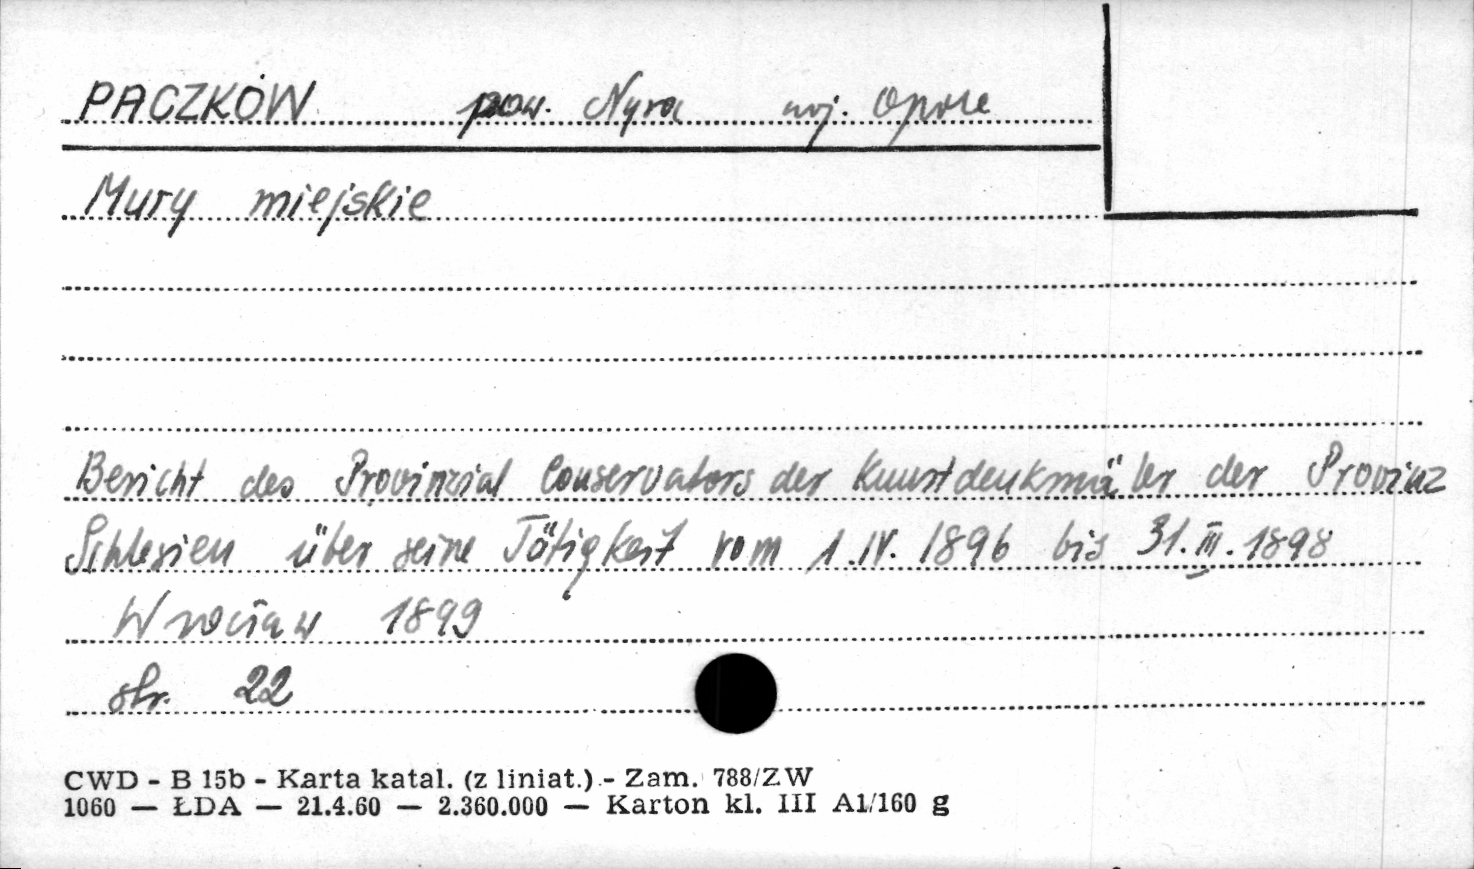 PACZKÓW pow. Nysa woj. Opole
Mury miejskie
Bericht des Provinzial Conservators der Kunstdenkmäler der Provinz
Schlesien über seine Tätigkeit vom 1.IV. 1896 bis 31.III.1898
Wrocław 1899
str. 22
CWD - B 15b - Karta katal. (z liniat.) - Zam. 788/ZW
1060 — ŁDA — 21.4.60 — 2.360.000 — Karton kl. III A1/160 g